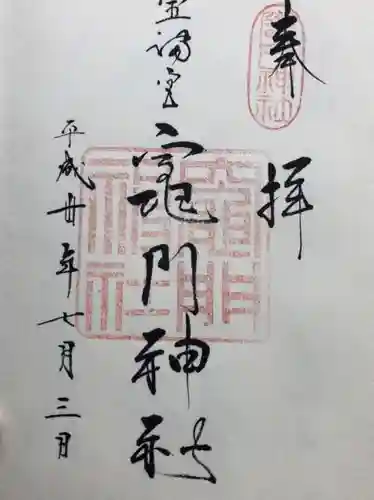 奉拝
宝満宮
竈門神社
平成廿年七月三日
竈門神社